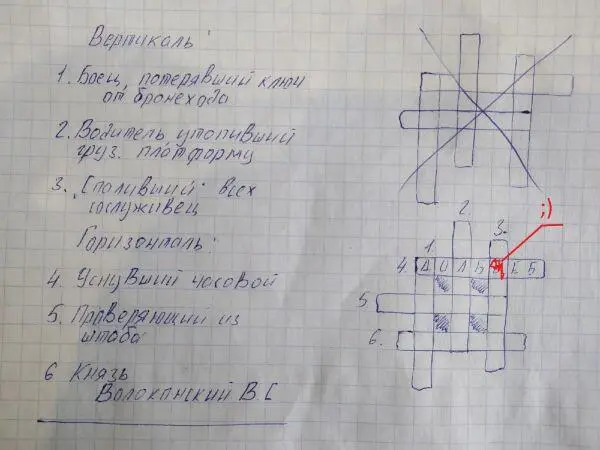 Вертикаль:
1. Боец, потерявший ключи
от бронехода
2. Водитель утопивший
груз. платформу
3. "Спаливший" всех
сослуживец
Горизонталь:
4. Уснувший часовой
5. Проверяющий из
штаба
6 Князь
Волоканский В С
;)
2.
3.
1.
4. Д О Л Ь Е Б
5
6.